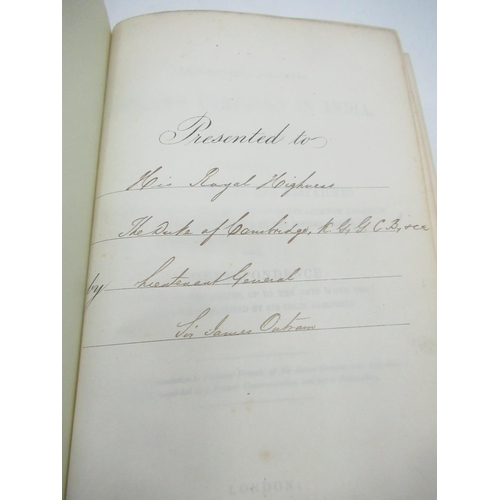 Presented to
His Royal Highness
The Duke of Cambridge, K.G, G.C.B, &ca
by Lieutenant General
Sir James Outram
LONDON: